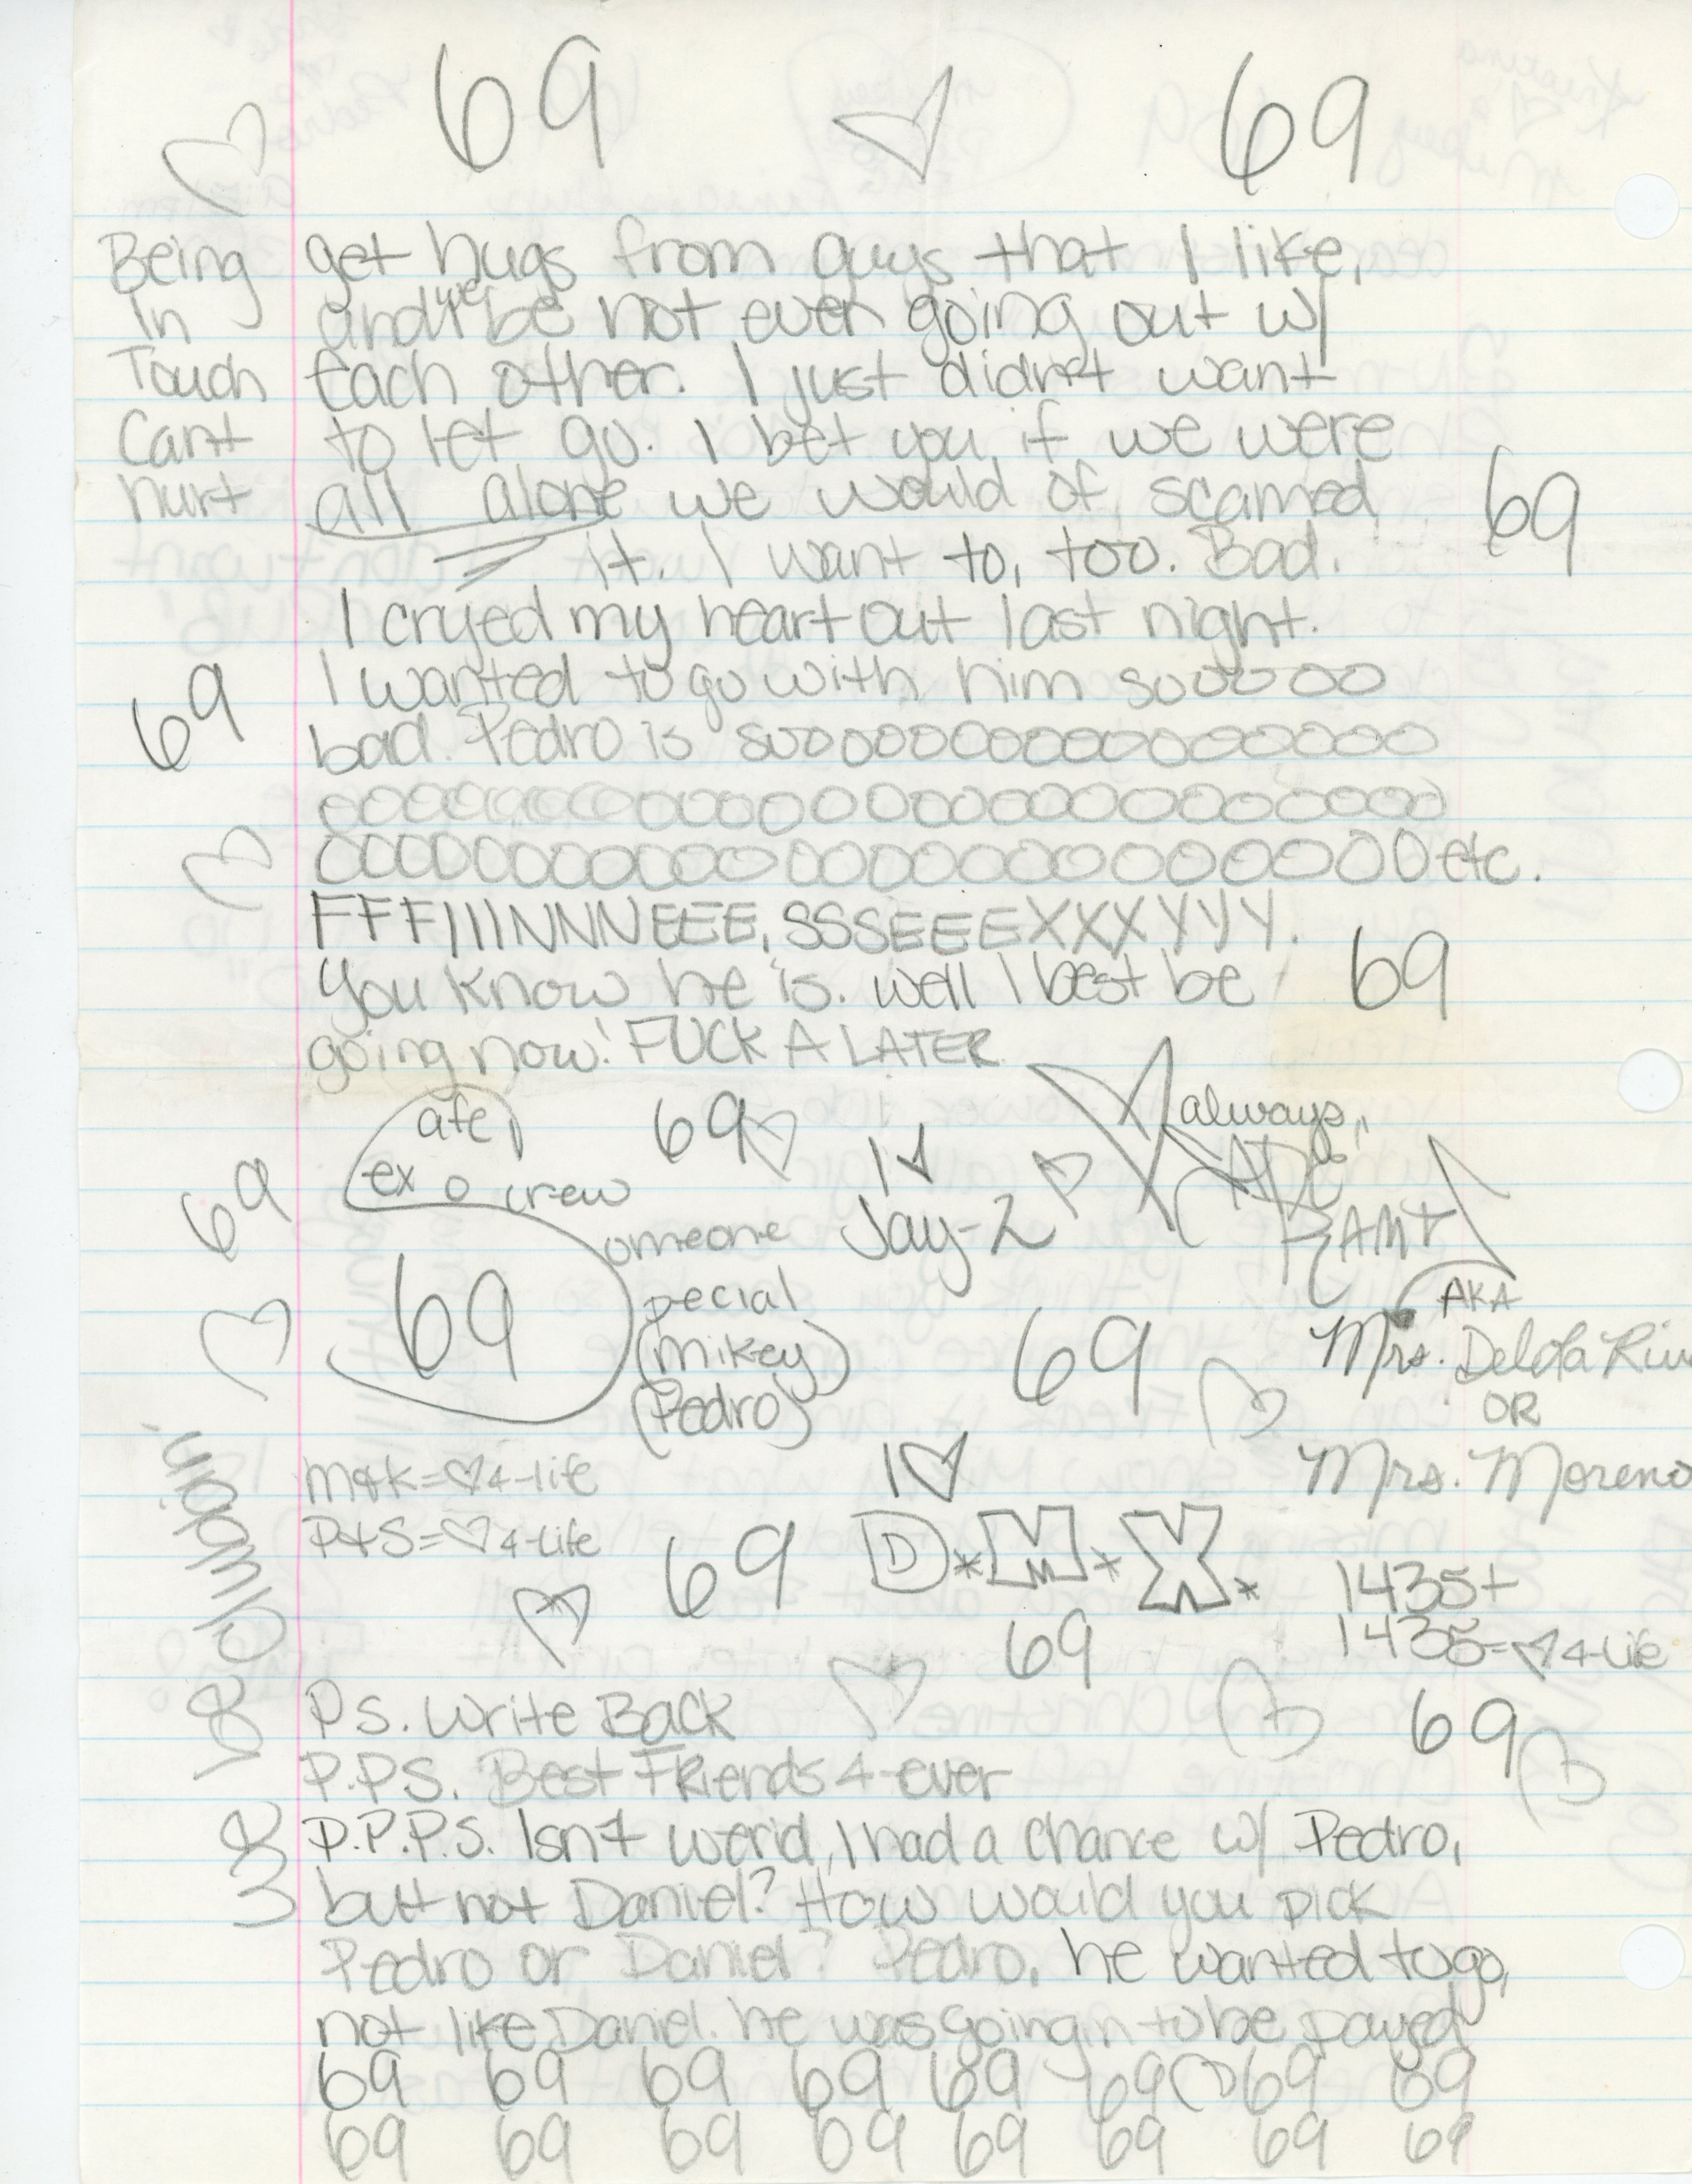 69 69
Being get hugs from guys that I like,
In and we be not ever going out w/
Touch each other. I just didn't want
Cant to let go. I bet you, if we were
hurt all alone we would of scamed 69
it. I want to, too. Bad.
I cryed my heart out last night.
I wanted to go with him sooooo
69
bad. Pedro is soooooooooooooooooo
ooooooooooooooooooooooooooo
OOOOOOOOOOOOOOOOOOOOOOOOOO etc.
FFFIIINNNEEE, SSSEEEXXXYYY.
You know he is. well I best be 69
going now! FUCK A LATER
afe 69 always,
ex o crew I
69 omeone Jay-2
69 pecial AMT
(Mikey) 69 AKA
(Pedro) Mrs. Delola
OR
M+K=♡4-life I ♡ Mrs. Moreno
P+S=♡4-life 69 D*M*X*
1435+
69 1435=♡4-life
PS. Write Back
69
P.P.S. Best Friends 4-ever
P.P.P.S. Isn't werid, I had a chance w/ Pedro,
but not Daniel? How would you pick
Pedro or Daniel? Pedro, he wanted to go,
not like Daniel. he was going to be payed
69 69 69 69 69 69 69 69
69 69 69 69 69 69 69 69